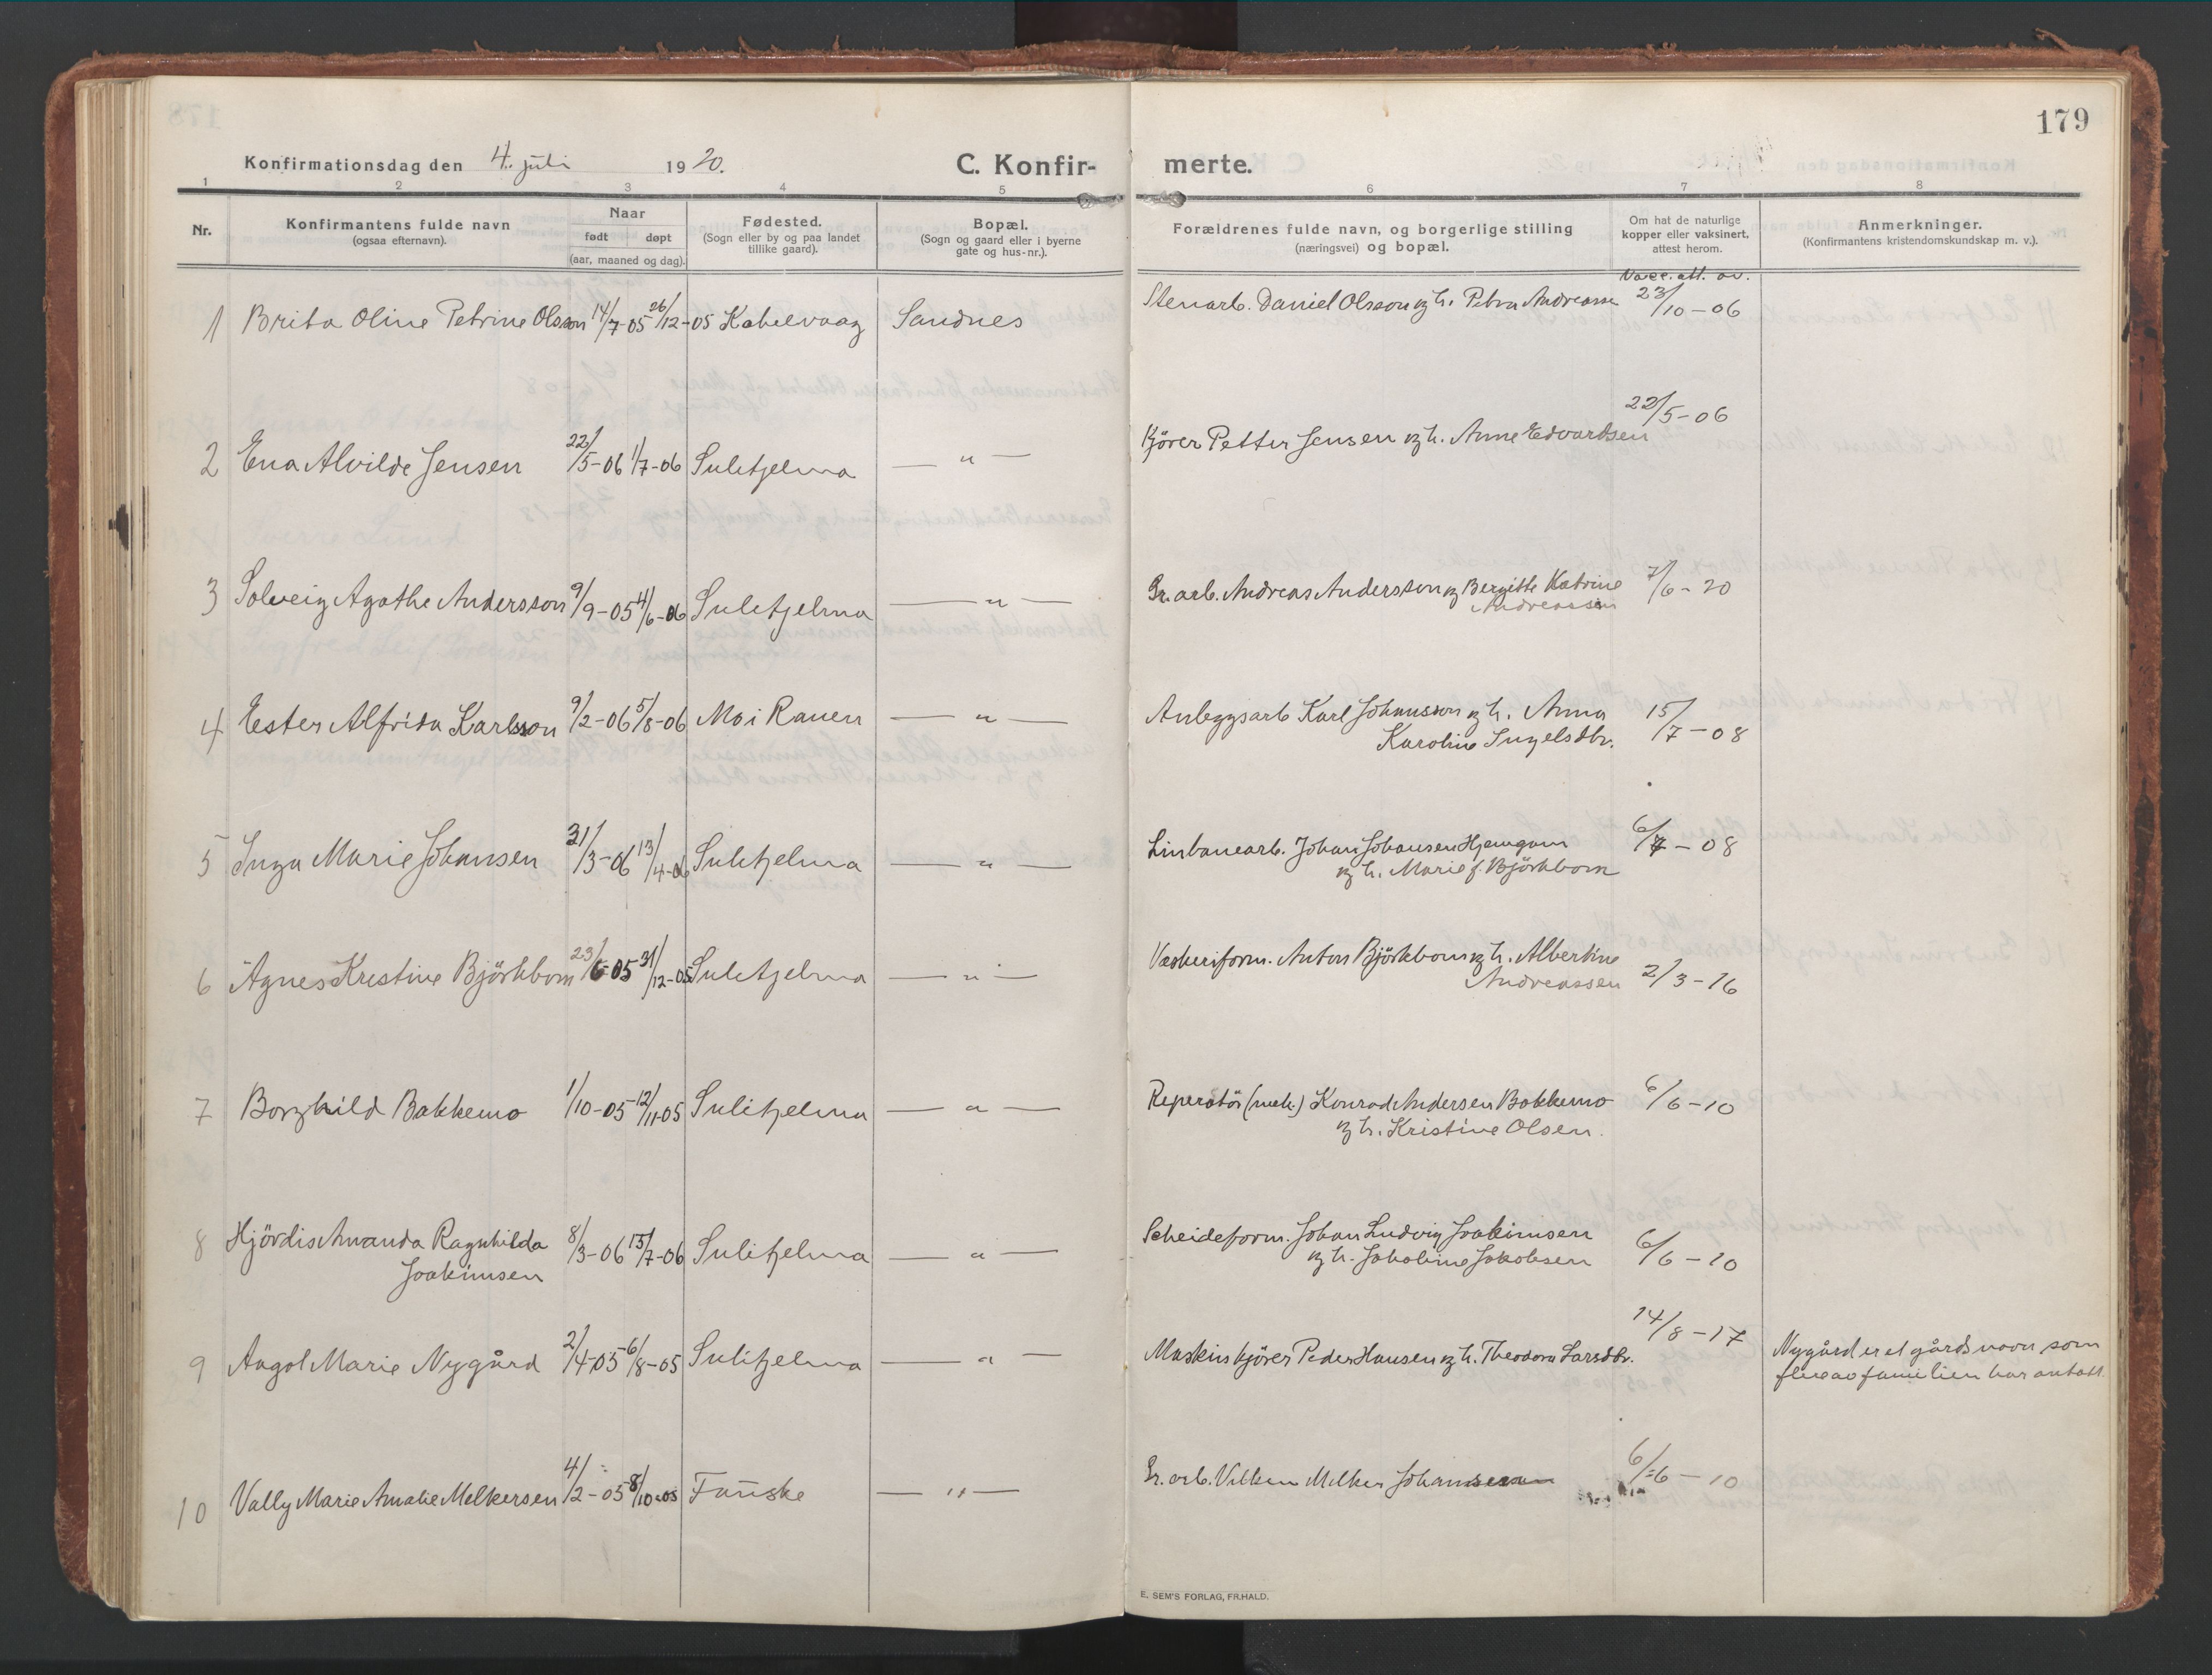 179
Konfirmationsdag den 4. juli 1920. C. Konfir- merte.
1 2 3 4 5 6 7 8
Nr. Konfirmantens fulde navn (ogsaa efternavn). Naar født døpt (aar, maaned og dag). Fødested. (Sogn eller by og paa landet tillike gaard). Bopæl. (Sogn og gaard eller i byerne gate og hus-nr.). Forældrenes fulde navn, og borgerlige stilling (næringsvei) og bopæl. Om hat de naturlige kopper eller vaksinert, attest herom. Anmerkninger. (Konfirmantens kristendomskundskap m. v.).
Vacc. att. av.
1 Brita Oline Petrine Olsson 14/7-05 26/12-05 Kabelvaag Sandnes Stenarb. Daniel Olsson og h. Petra Andreassen 23/10-06
2 Ena Alvilde Jensen 22/5-06 1/7-06 Sulitjelma — " — Kjörer Petter Jensen og h. Anne Edvardsen 22/5-06
3 Solveig Agathe Andersson 9/9-05 4/6-06 Sulitjelma — " — Gr. arb. Andreas Andersson og Bergitte Katrine
Andreassen 7/6-20
4 Ester Alfrida Karlsson 9/2-06 5/8-06 Mo i Ranen — " — Anleggsarb Karl Johansson og h. Anna
Karoline Ingelsdtr. 15/7-08
5 Inga Marie Johansen 31/3-06 13/4-06 Sulitjelma — " — Linbanearb. Johan Johansen Hjemgam
og h. Marie f. Björkbom 6/7-08
6 Agnes Kristine Björkbom 23/6-05 31/12-05 Sulitjelma — " — Vaskeriform. Anton Björkbom og h. Albertine
Andreassen 2/3-16
7 Borghild Bakkemo 1/10-05 12/11-05 Sulitjelma — " — Reperatör (mek.) Konrad Andersen Bakkemo
og h. Kristine Olsen. 6/6-10
8 Hjördis Amanda Ragnhilda
Joakimsen 8/3-06 15/7-06 Sulitjelma — " — Scheideform. Johan Ludvig Joakimsen
og h. Jakobine Jakobsen 6/6-10
9 Aagot Marie Nygård 2/4-05 6/8-05 Sulitjelma — " — Maskinkjörer Peder Hansen og h. Theodora Larsdtr. 14/8-17 Nygård er et gårdsnavn som
flere av familien har antatt
10 Vally Marie Amalie Melkersen 4/2-05 8/10-05 Fauske — " — Gr. arb. Vilken Melker Johansen 6/6-10
E. SEM'S FORLAG, FR.HALD.